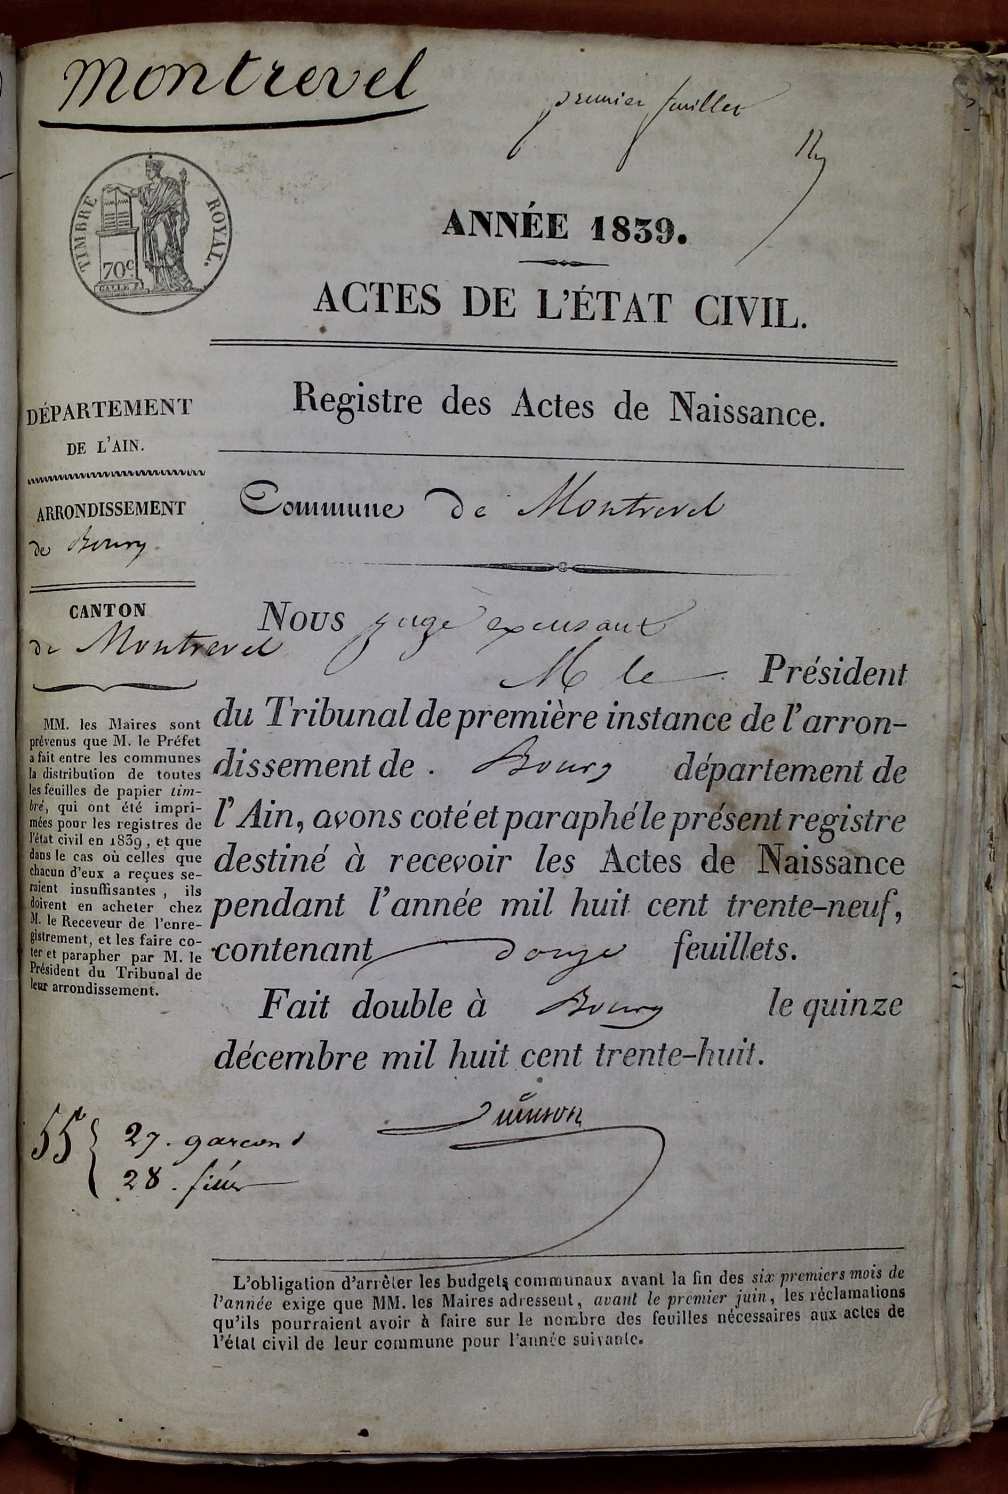 Montrevel
premier feuillet
TIMBRE ROYAL.
70c
ANNÉE 1839.
ACTES DE L'ÉTAT CIVIL.
Registre des Actes de Naissance.
DÉPARTEMENT
DE L'AIN.
ARRONDISSEMENT
de Bourg
CANTON
de Montrevel
MM. les Maires sont
prévenus que M. le Préfet
a fait entre les communes
la distribution de toutes
les feuilles de papier tim-
bré, qui ont été impri-
mées pour les registres de
l'état civil en 1839, et que
dans le cas où celles que
chacun d'eux a reçues se-
raient insuffisantes, ils
doivent en acheter chez
M. le Receveur de l'enre-
gistrement, et les faire co-
ter et parapher par M. le
Président du Tribunal de
leur arrondissement.
Commune de Montrevel
NOUS juge
M le Président
du Tribunal de première instance de l'arron-
dissement de Bourg département de
l'Ain, avons coté et paraphé le présent registre
destiné à recevoir les Actes de Naissance
pendant l'année mil huit cent trente-neuf,
contenant douze feuillets.
Fait double à Bourg le quinze
décembre mil huit cent trente-huit.
55 { 27. garcons
28. filles
L'obligation d'arrêter les budgets communaux avant la fin des six premiers mois de
l'année exige que MM. les Maires adressent, avant le premier juin, les réclamations
qu'ils pourraient avoir à faire sur le nombre des feuilles nécessaires aux actes de
l'état civil de leur commune pour l'année suivante.